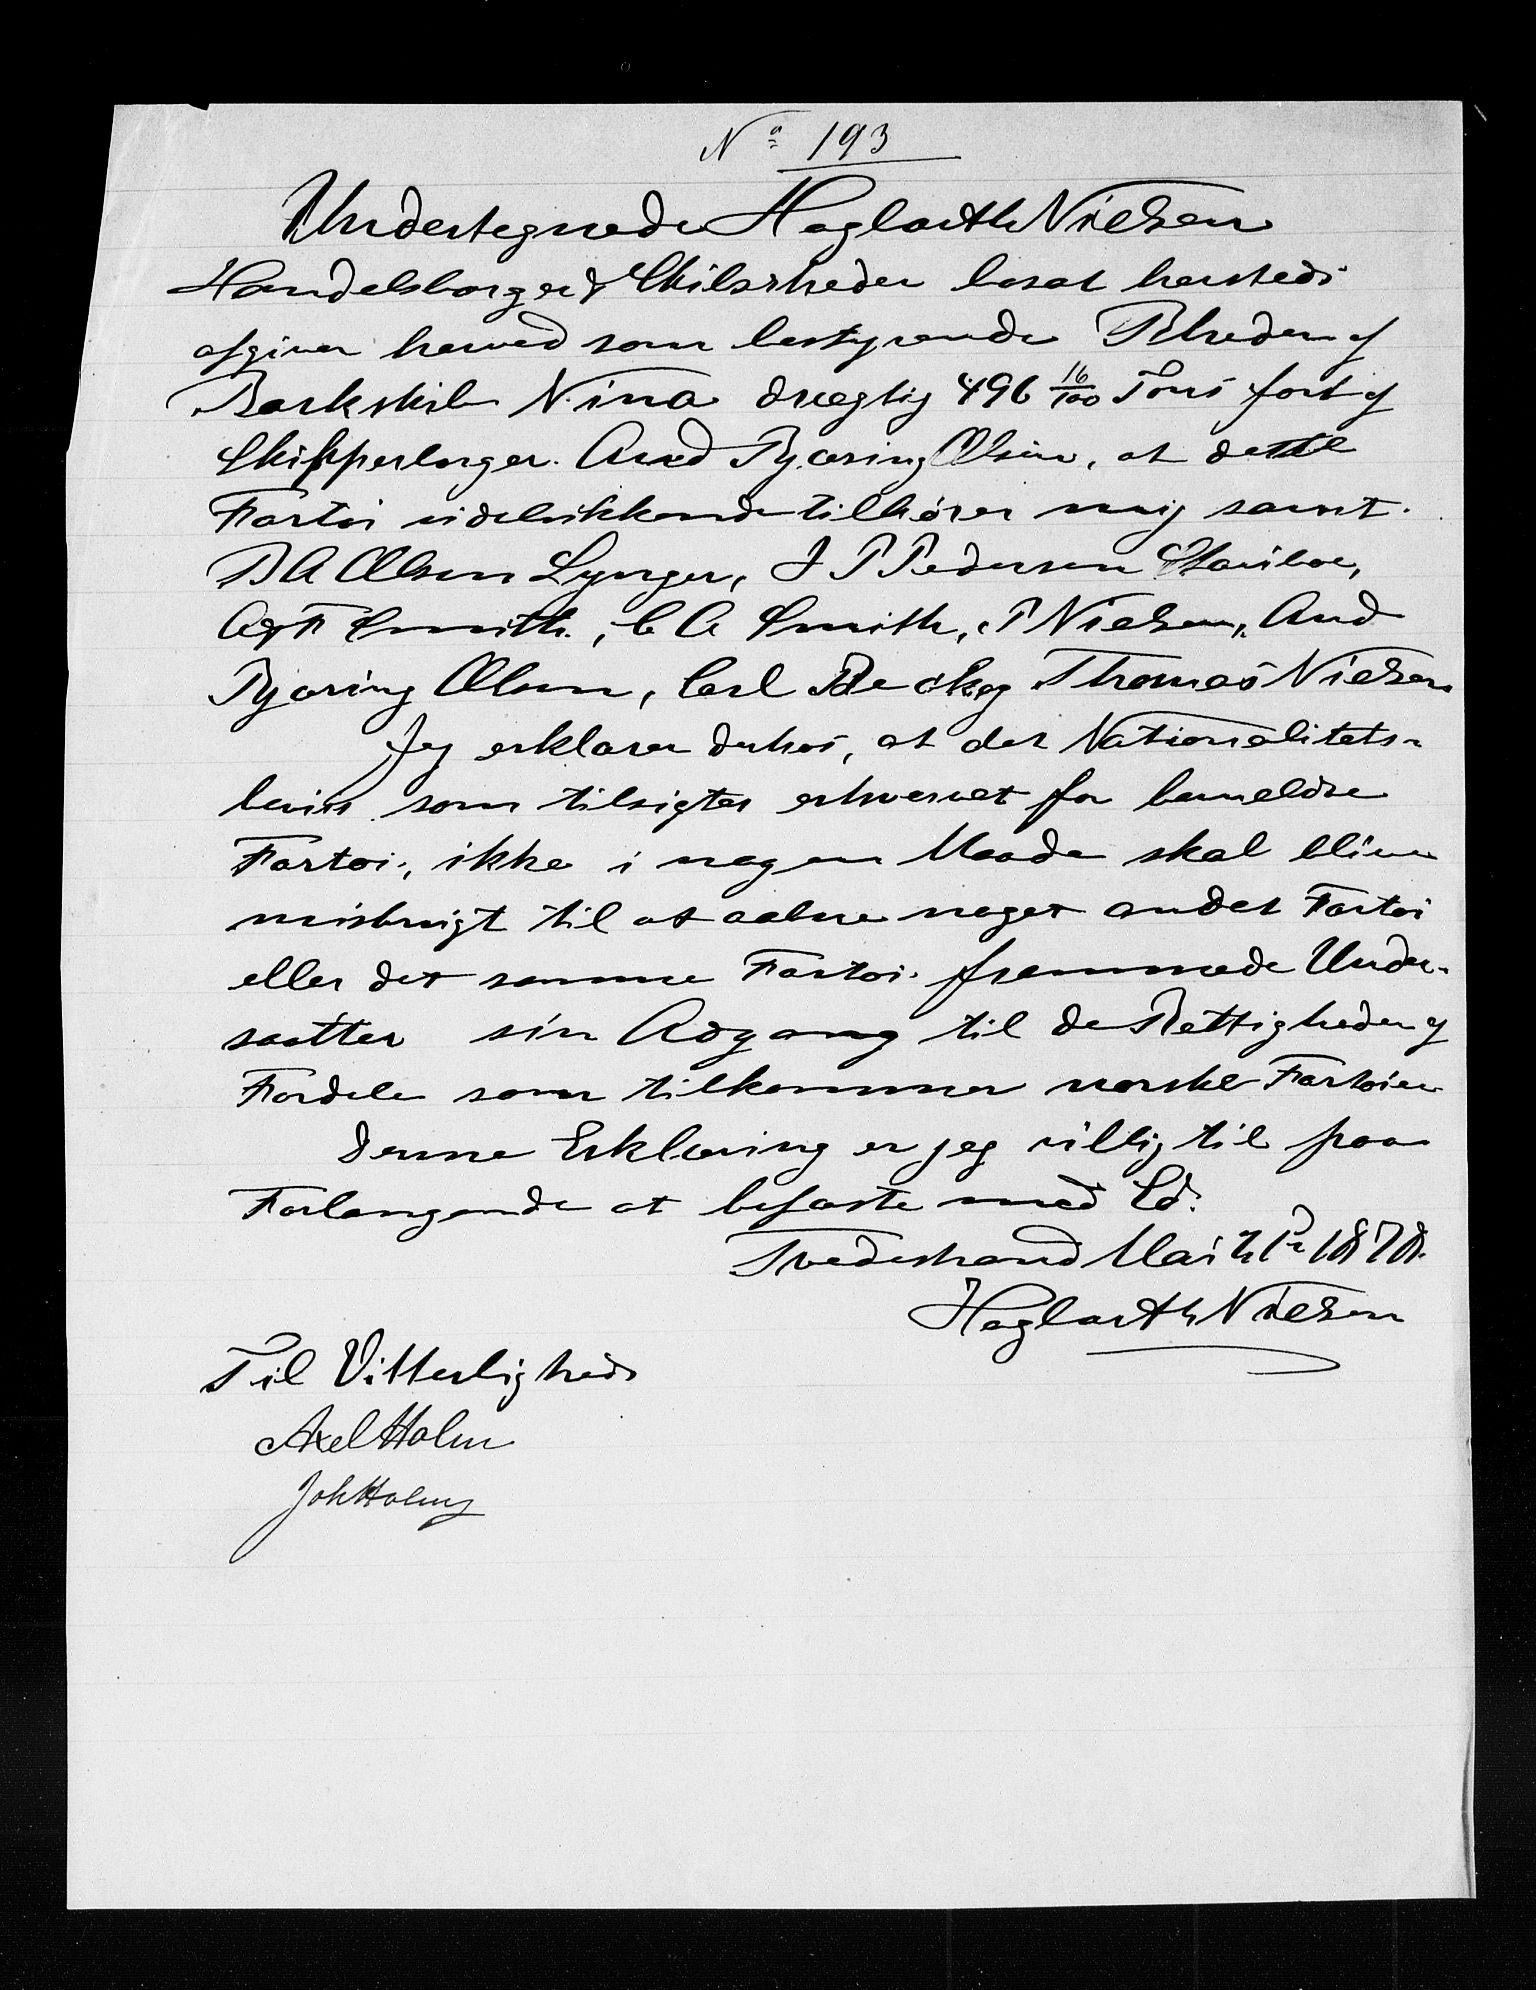 No 193
Undertegnede Haglarth Nielsen
Handelsborger & Skibsrheder bosat hersteds
afgiver herved som bestyrende Rheder af
Barkskib Nina drægtig 496 16/100 Tons fört af
Skipperborger And Bjering Olsen, at dette
Fartöi udelukkende tilhører mig samt
B A Olsen Lynger, J P Pedersen
A F Smith, C A Smith, P Nielsen, And
Bjering Olsen, Carl Beck og Thomas Nielsen
Jeg erklærer derhos, at det Nationalitets-
beviis som tilsigtes erhvervet for bemeldte
Fartöi, ikke i nogen Maade skal blive
misbrugt til at aabne noget andet Fartöi
eller det samme Fartöi fremmede Under-
saatter sin Adgang til de Rettigheder og
Fordele som tilkommer norske Fartöier
Denne Erklæring er jeg villig til paa
Forlangende at befæste med Ed.
Tvedestrand Mai 21de 1878.
Haglarth Nielsen
Til Vitterlighed
Axel Holm
Joh Holm